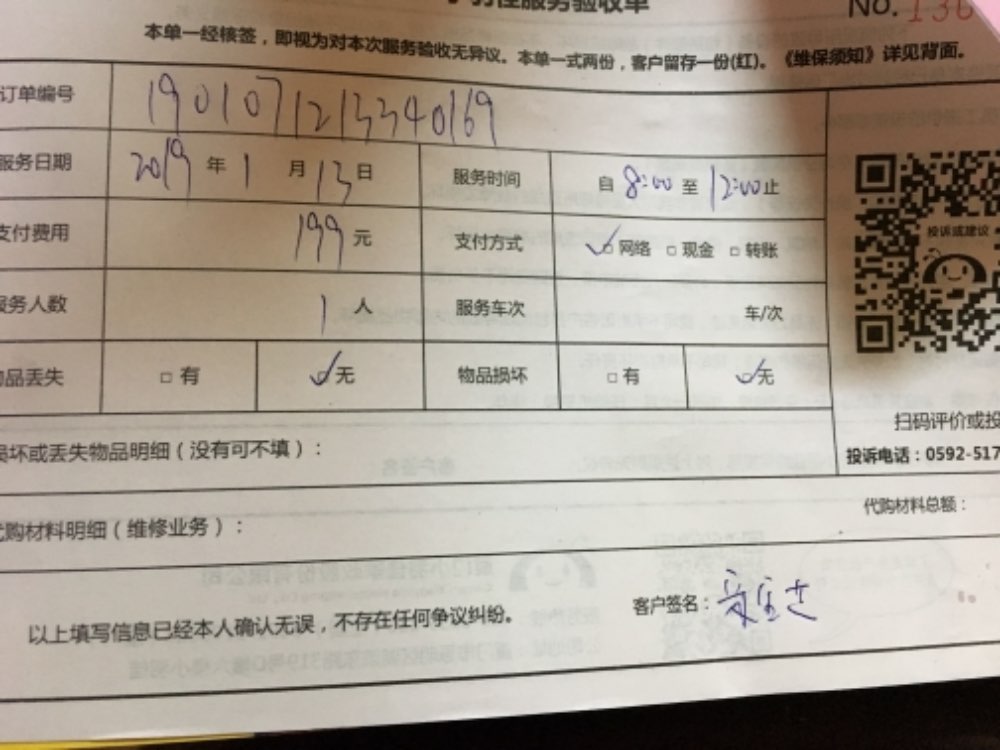 服务验收单
No. 136
本单一经核签，即视为对本次服务验收无异议。本单一式两份，客户留存一份(红)。《维保须知》详见背面。
订单编号 1901071213340169
服务日期 2019 年 1 月 13 日 服务时间 自 8:00 至 12:00 止
支付费用 199 元 支付方式 ☑网络 □现金 □转账
投诉或建议
服务人数 1 人 服务车次 车/次
物品丢失 □有 ☑无 物品损坏 □有 ☑无
扫码评价或投
损坏或丢失物品明细（没有可不填）：
投诉电话：0592-517
代购材料明细（维修业务）：
代购材料总额：
以上填写信息已经本人确认无误，不存在任何争议纠纷。
客户签名：